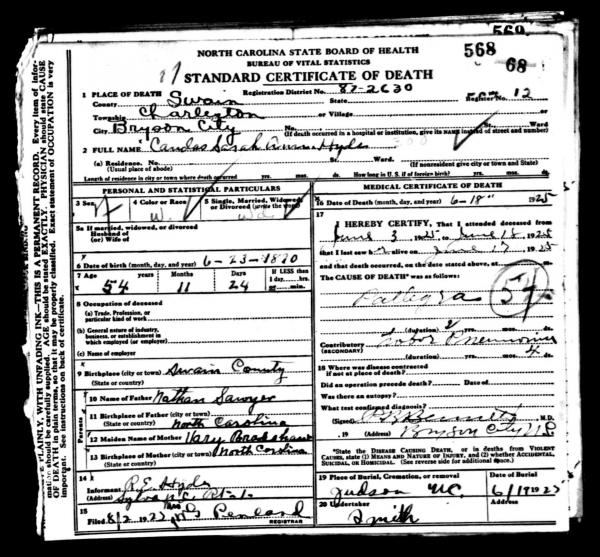 569
568
68
NORTH CAROLINA STATE BOARD OF HEALTH
BUREAU OF VITAL STATISTICS
STANDARD CERTIFICATE OF DEATH
1 PLACE OF DEATH Registration District No. 87-2630
County Swain State Register No. 12
Township Charleston or Village
City Bryson City No. St. Ward
(If death occurred in a hospital or institution, give its NAME instead of street and number)
2 FULL NAME Candas Sarah Hyde
(a) Residence. No. St. Ward.
(Usual place of abode) (If nonresident give city or town and State)
Length of residence in city or town where death occurred yrs. mos. ds. How long in U.S. if of foreign birth? yrs. mos. ds.
PERSONAL AND STATISTICAL PARTICULARS
3 Sex F 4 Color or Race W. 5 Single, Married, Widowed, or Divorced (write the word) Wd
5a If married, widowed, or divorced
Husband of
(or) Wife of
6 Date of birth (month, day, and year) 6-23-1870
7 Age 54 Months 11 Days 24 If LESS than
1 day, hrs.
or min.
8 Occupation of deceased
(a) Trade, Profession, or
particular kind of work
(b) General nature of industry,
business, or establishment in
which employed (or employer)
(c) Name of employer
9 Birthplace (city or town) Swain County
(State or country)
Parents
10 Name of Father Nathan Sawyer
11 Birthplace of Father (city or town)
(State or country) North Carolina
12 Maiden Name of Mother Mary Bradshaw
13 Birthplace of Mother (city or town)
(State or country) North Carolina
14
Informant R.E. Hyde
(Address) Sylva N.C. Rt. 1
15
Filed 8/2 1925 Penland
REGISTRAR
MEDICAL CERTIFICATE OF DEATH
16 Date of Death (month, day, and year) 6-18 1925
17
I HEREBY CERTIFY, That I attended deceased from
June 3 1925 to June 18 1925
that I last saw h alive on June 17 1925
and that death occurred, on the date stated above, at m.
The CAUSE OF DEATH was as follows:
Pallegra 54
(duration) 2 yrs. mos. ds.
Contributory Lobar Pneumonia
(SECONDARY)
(duration) yrs. mos. 4 ds.
18 Where was disease contracted
if not at place of death?
Did an operation precede death? Date of
Was there an autopsy?
What test confirmed diagnosis?
(Signed) Bennett M.D.
, 19 (Address) Bryson City N.C.
*State the DISEASE CAUSING DEATH, or in deaths from VIOLENT
CAUSES, state (1) MEANS AND NATURE OF INJURY, and (2) whether ACCIDENTAL,
SUICIDAL, or HOMICIDAL. (See reverse side for additional space.)
19 Place of Burial, Cremation, or removal Date of Burial
Judson NC 6/19 1925
20 Undertaker
Smith
PLAINLY, WITH UNFADING INK—THIS IS A PERMANENT RECORD. Every item of infor-
carefully supplied. AGE should be stated EXACTLY. PHYSICIAN should state CAUSE
OF DEATH in plain terms, so that it may be properly classified. Exact statement of OCCUPATION is very
important. See instructions on back of certificate.